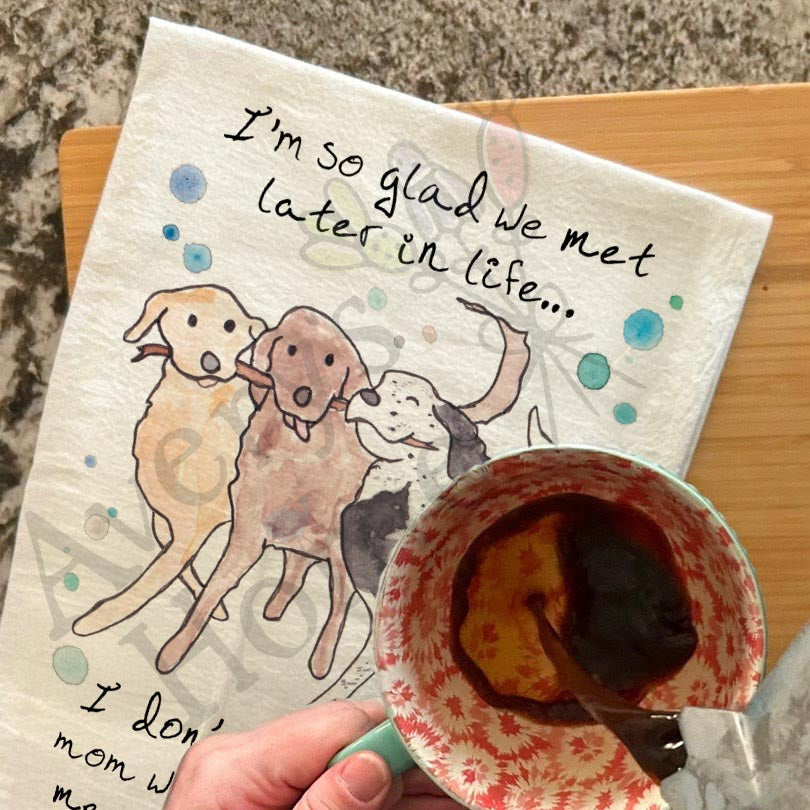 I'm so glad we met
later in life...
I don'
mom w
Averys
Home